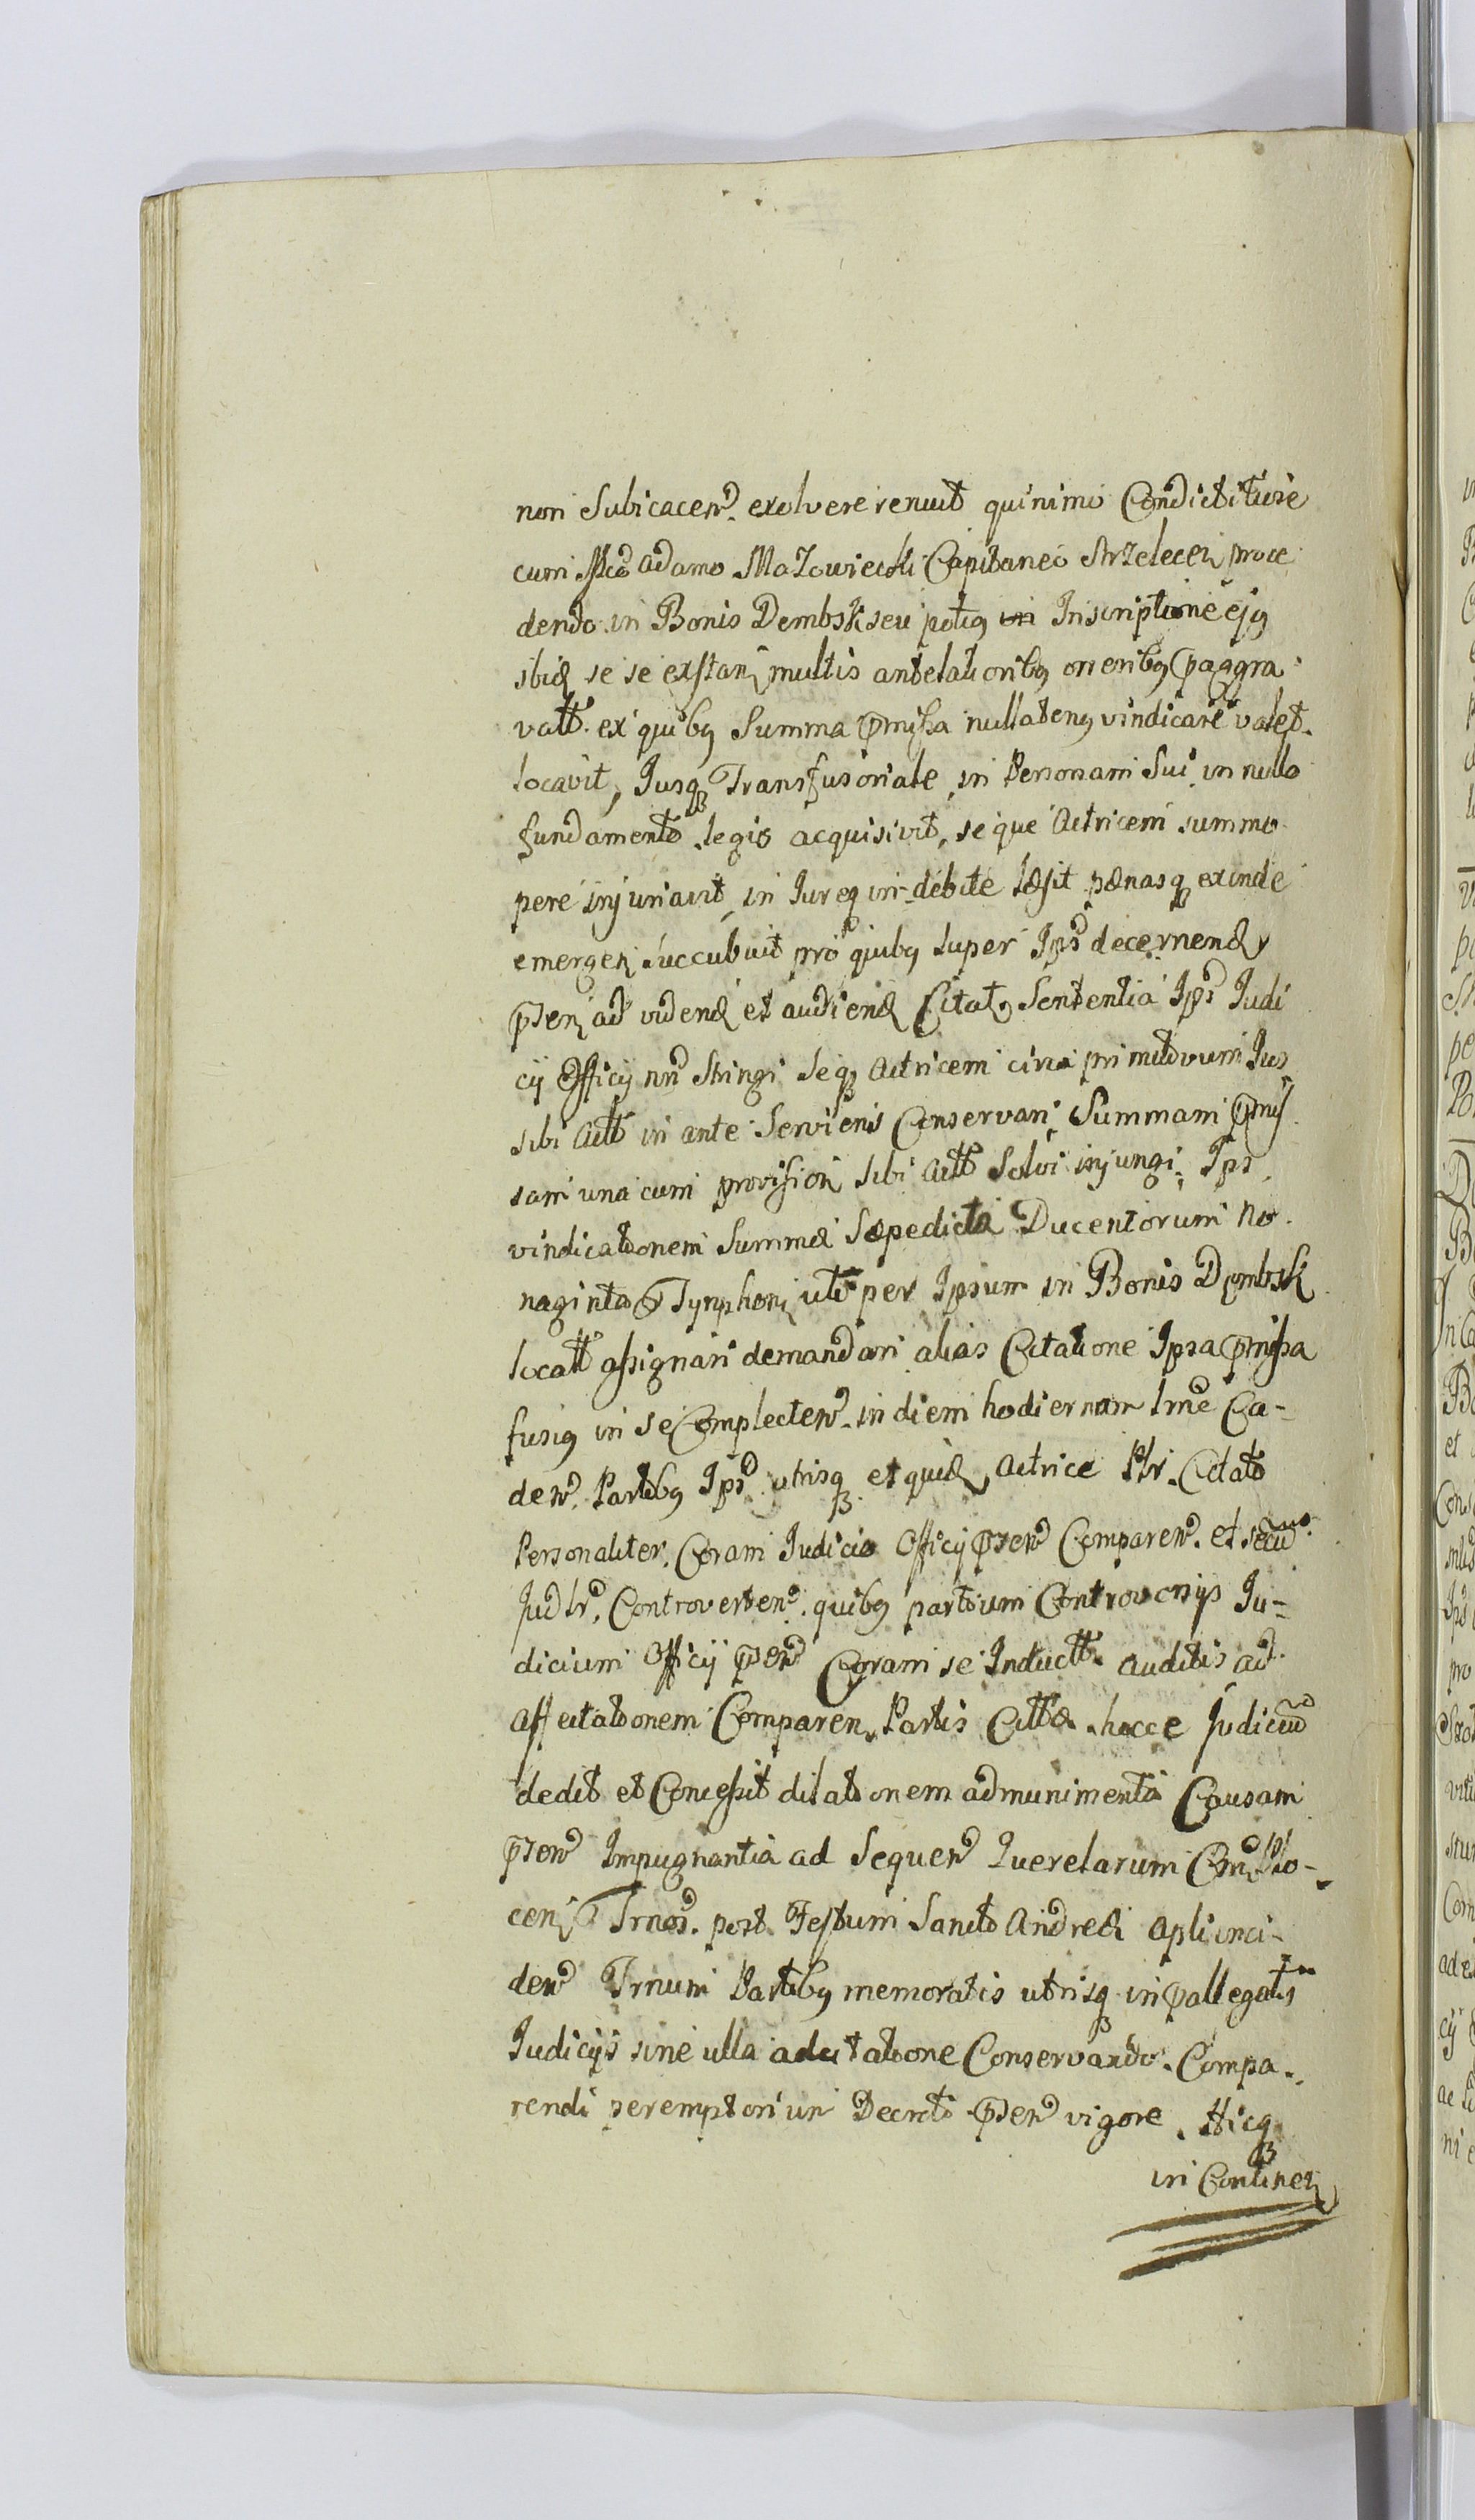 non Subicacen. exolvere renuit quinimo Condictitiore
cum Mco Adamo Mazowiecki Capitaneo Strzelecen proce
dendo in Bonis Dembsk seu potiq in Inscriptione ejq
ibid se se exstan multis antelationibq oneribq paggra
vatt. ex quibq Summa pmissa nullatenq vindicare valet.
locavit, Jusq Transfusoriale in Personam Sui in nullo
fundamento legis acquisivit, seque Actricem summo
pere injuriavit, in Jureq in-debite læsit pænasq exinde
emergen succubuit pro quibq super Ips decernend
psen ad vidend et audiend Citat, Sententia Ips Judi
cij Officij nri Stringi Seq Actricem circa primitivum Jus
sibi Actt in ante Serviens Conservari, Summam pmis
sam una cum provision sibi Actt Solvi injungi, Ips
vindicationem Summæ Sæpedicta Ducentorum No
naginta Tynphon uti per Ipsum in Bonis Dembsk
locatt assignari demandari alias Citatione Ipsa pmissa
fusiq in se Complecten. in diem hodiernam lme Ca-
den. Partibq Ips utrisq et quid Actrice Ptr. Citato
Personaliter, Coram Judicio Officij psen Comparen. et secum
Judlr, Controverten. quibq partium Controversijs Ju-
dicium Officij psen Coram se Inductt. auditis ad
affectationem Comparen. Partis Cittæ. hocce Judicium
dedit et Concessit dilationem ad munimenta Causam
psen Impugnantia ad Sequen Querelarum Cm Plo-
cen Trnos. post Festum Sancto Andreæ Apli inci-
den Trnum Partibq memoratis utrisq in pallegatis
Judicijs sine ulla adcitatione Conservando. Compa-
rendi peremptorium Decreto psen vigore. Hicq
in Continen